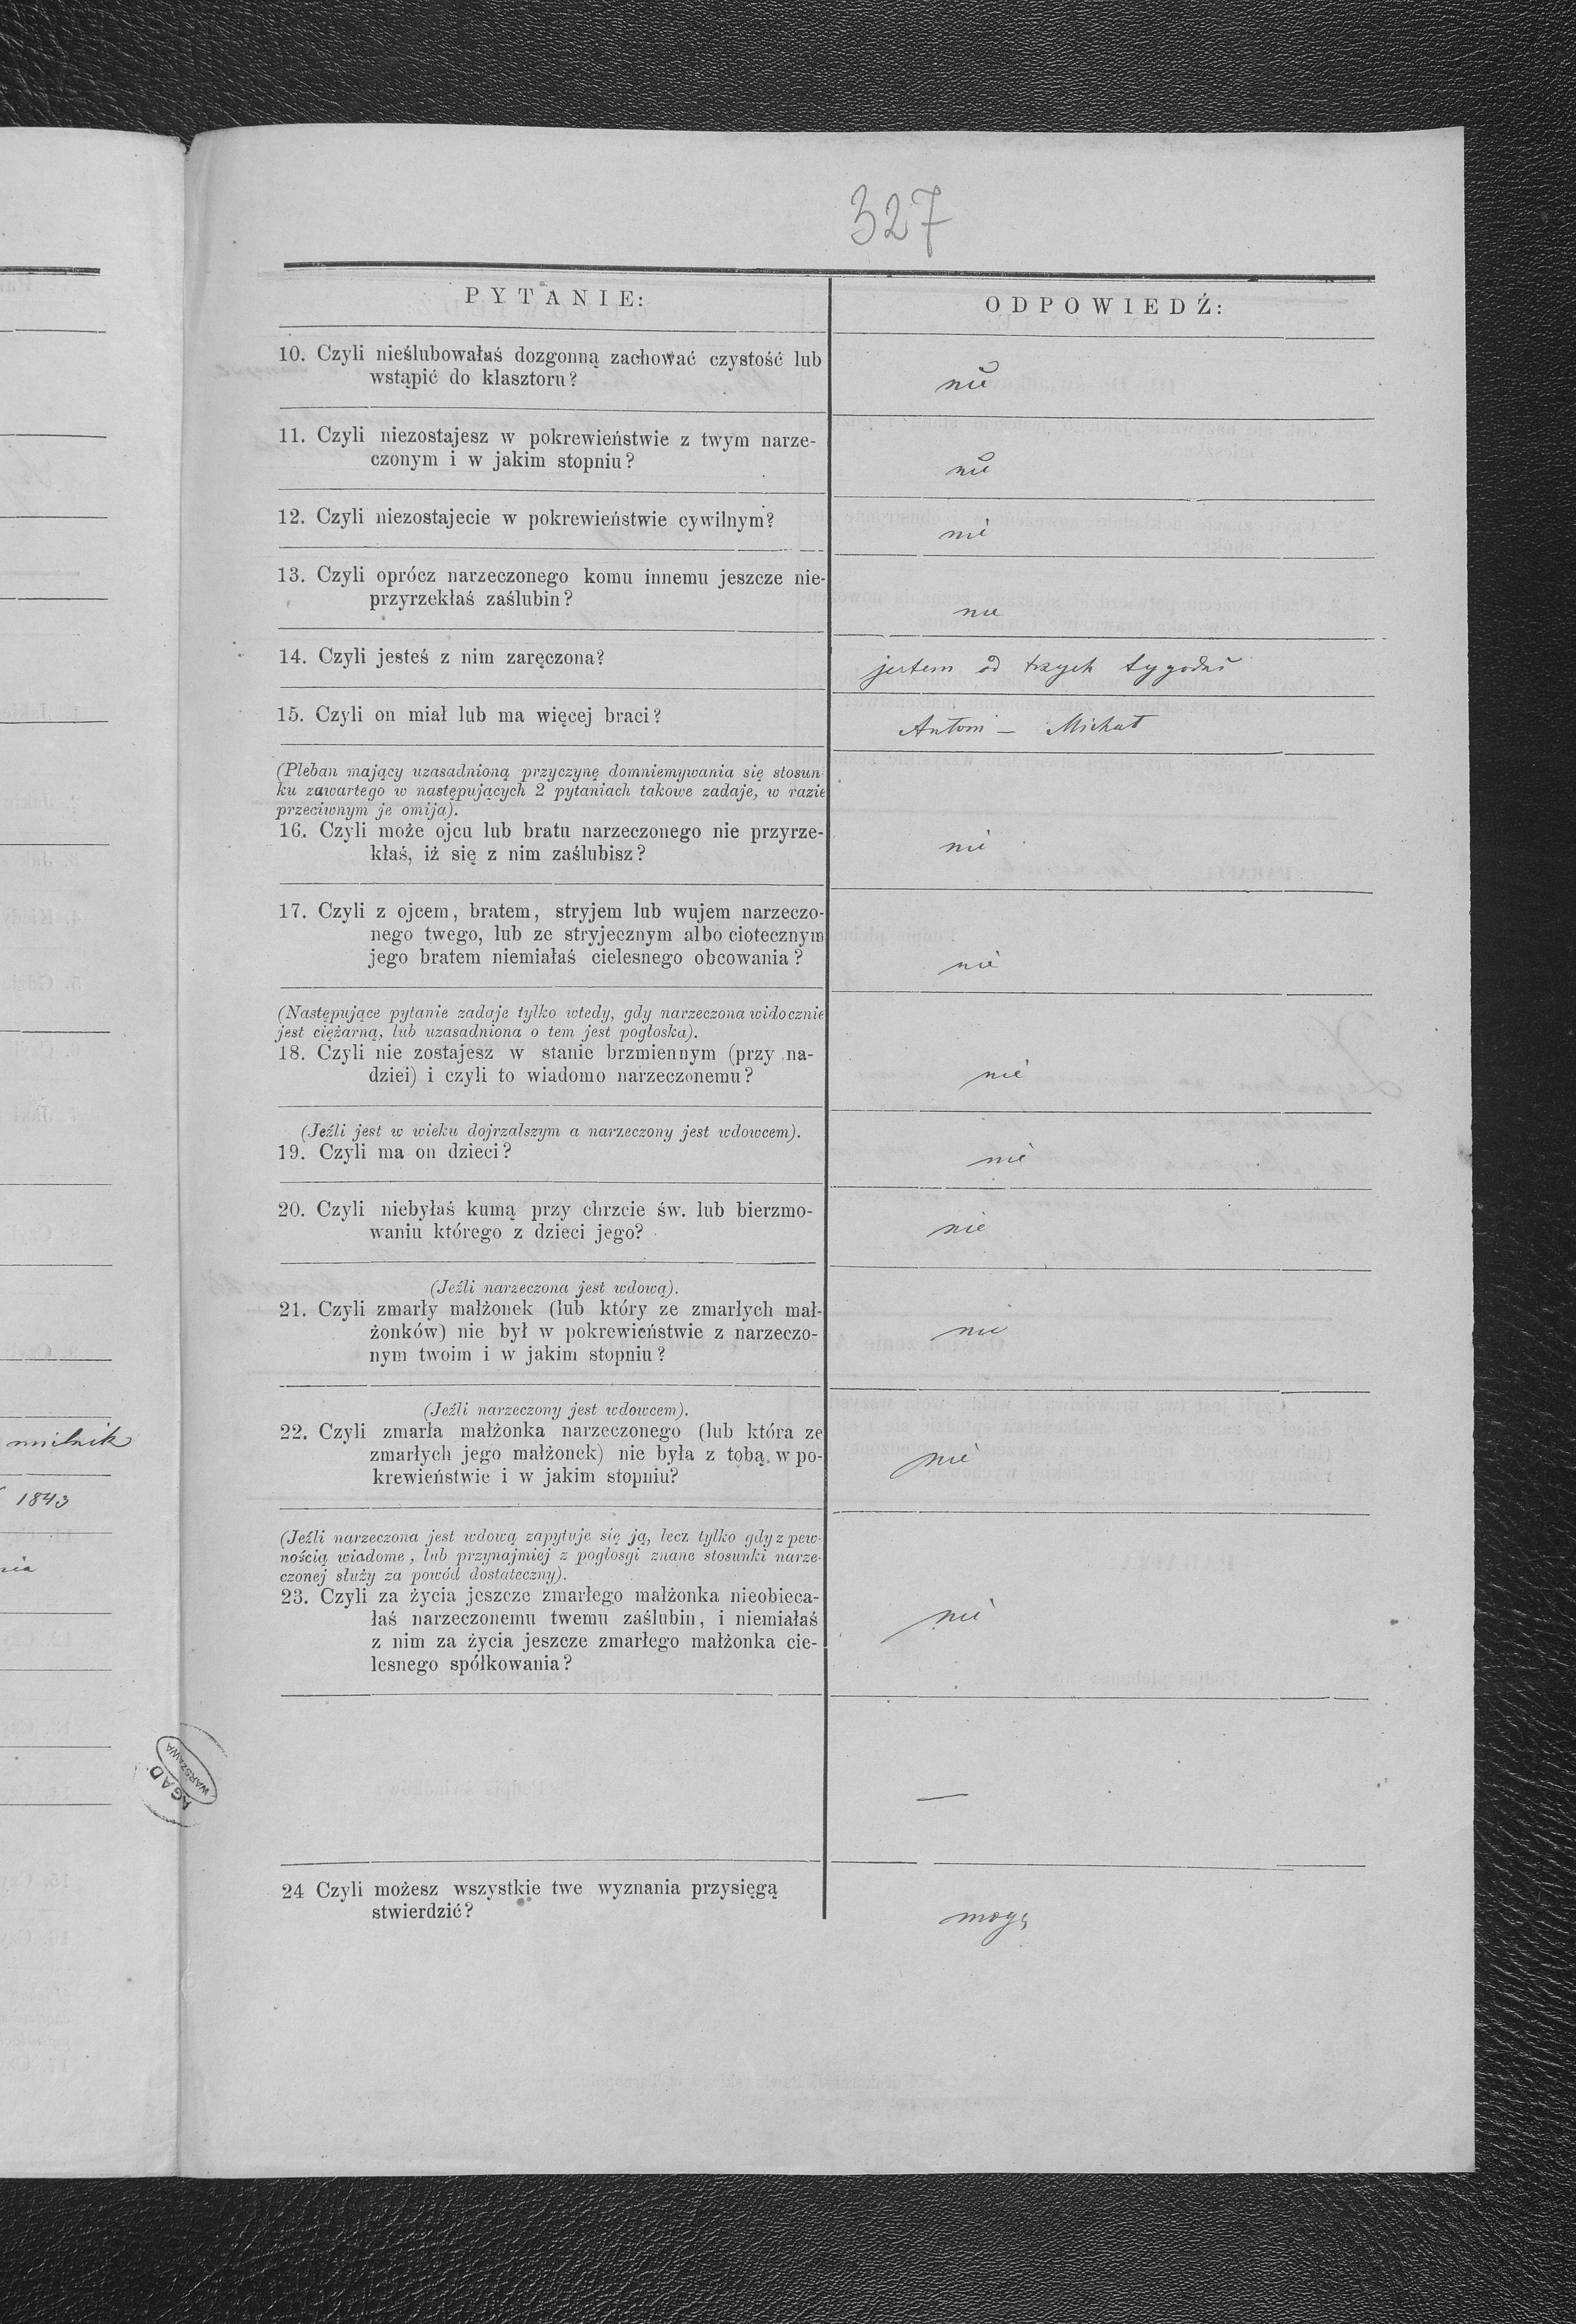 327
PYTANIE:
ODPOWIEDŹ:
10. Czyli nieślubowałaś dozgonną zachować czystość lub
wstąpić do klasztoru?
nie
11. Czyli niezostajesz w pokrewieństwie z twym narze-
czonym i w jakim stopniu?
nie
12. Czyli niezostajecie w pokrewieństwie cywilnym?
nie
13. Czyli oprócz narzeczonego komu innemu jeszcze nie-
przyrzekłaś zaślubin?
nie
14. Czyli jesteś z nim zaręczona?
jestem od trzych tygodni
15. Czyli on miał lub ma więcej braci?
Antoni — Michał
(Pleban mający uzasadnioną przyczynę domniemywania się stosun-
ku zawartego w następujących 2 pytaniach takowe zadaje, w razie
przeciwnym je omija).
16. Czyli może ojcu lub bratu narzeczonego nie przyrze-
kłaś, iż się z nim zaślubisz?
nie
17. Czyli z ojcem, bratem, stryjem lub wujem narzeczo-
nego twego, lub ze stryjecznym albo ciotecznym
jego bratem niemiałaś cielesnego obcowania?
nie
(Następujące pytanie zadaje tylko wtedy, gdy narzeczona widocznie
jest ciężarną, lub uzasadniona o tem jest pogłoska).
18. Czyli nie zostajesz w stanie brzmiennym (przy na-
dziei) i czyli to wiadomo narzeczonemu?
nie
(Jeźli jest w wieku dojrzalszym a narzeczony jest wdowcem).
19. Czyli ma on dzieci?
nie
20. Czyli niebyłaś kumą przy chrzcie św. lub bierzmo-
waniu którego z dzieci jego?
nie
(Jeźli narzeczona jest wdową).
21. Czyli zmarły małżonek (lub który ze zmarłych mał-
żonków) nie był w pokrewieństwie z narzeczo-
nym twoim i w jakim stopniu?
nie
(Jeźli narzeczony jest wdowcem).
22. Czyli zmarła małżonka narzeczonego (lub która ze
zmarłych jego małżonek) nie była z tobą w po-
krewieństwie i w jakim stopniu?
nie
(Jeźli narzeczona jest wdową zapytuje się ją, lecz tylko gdy z pew-
nością wiadome, lub przynajmiej z pogłosgi znane stosunki narze-
czonej służy za powód dostateczny).
23. Czyli za życia jeszcze zmarłego małżonka nieobieca-
łaś narzeczonemu twemu zaślubin, i niemiałaś
z nim za życia jeszcze zmarłego małżonka cie-
lesnego spółkowania?
nie
—
24 Czyli możesz wszystkie twe wyznania przysięgą
stwierdzić?
mogę
1843
AGAD
WARSZAWA